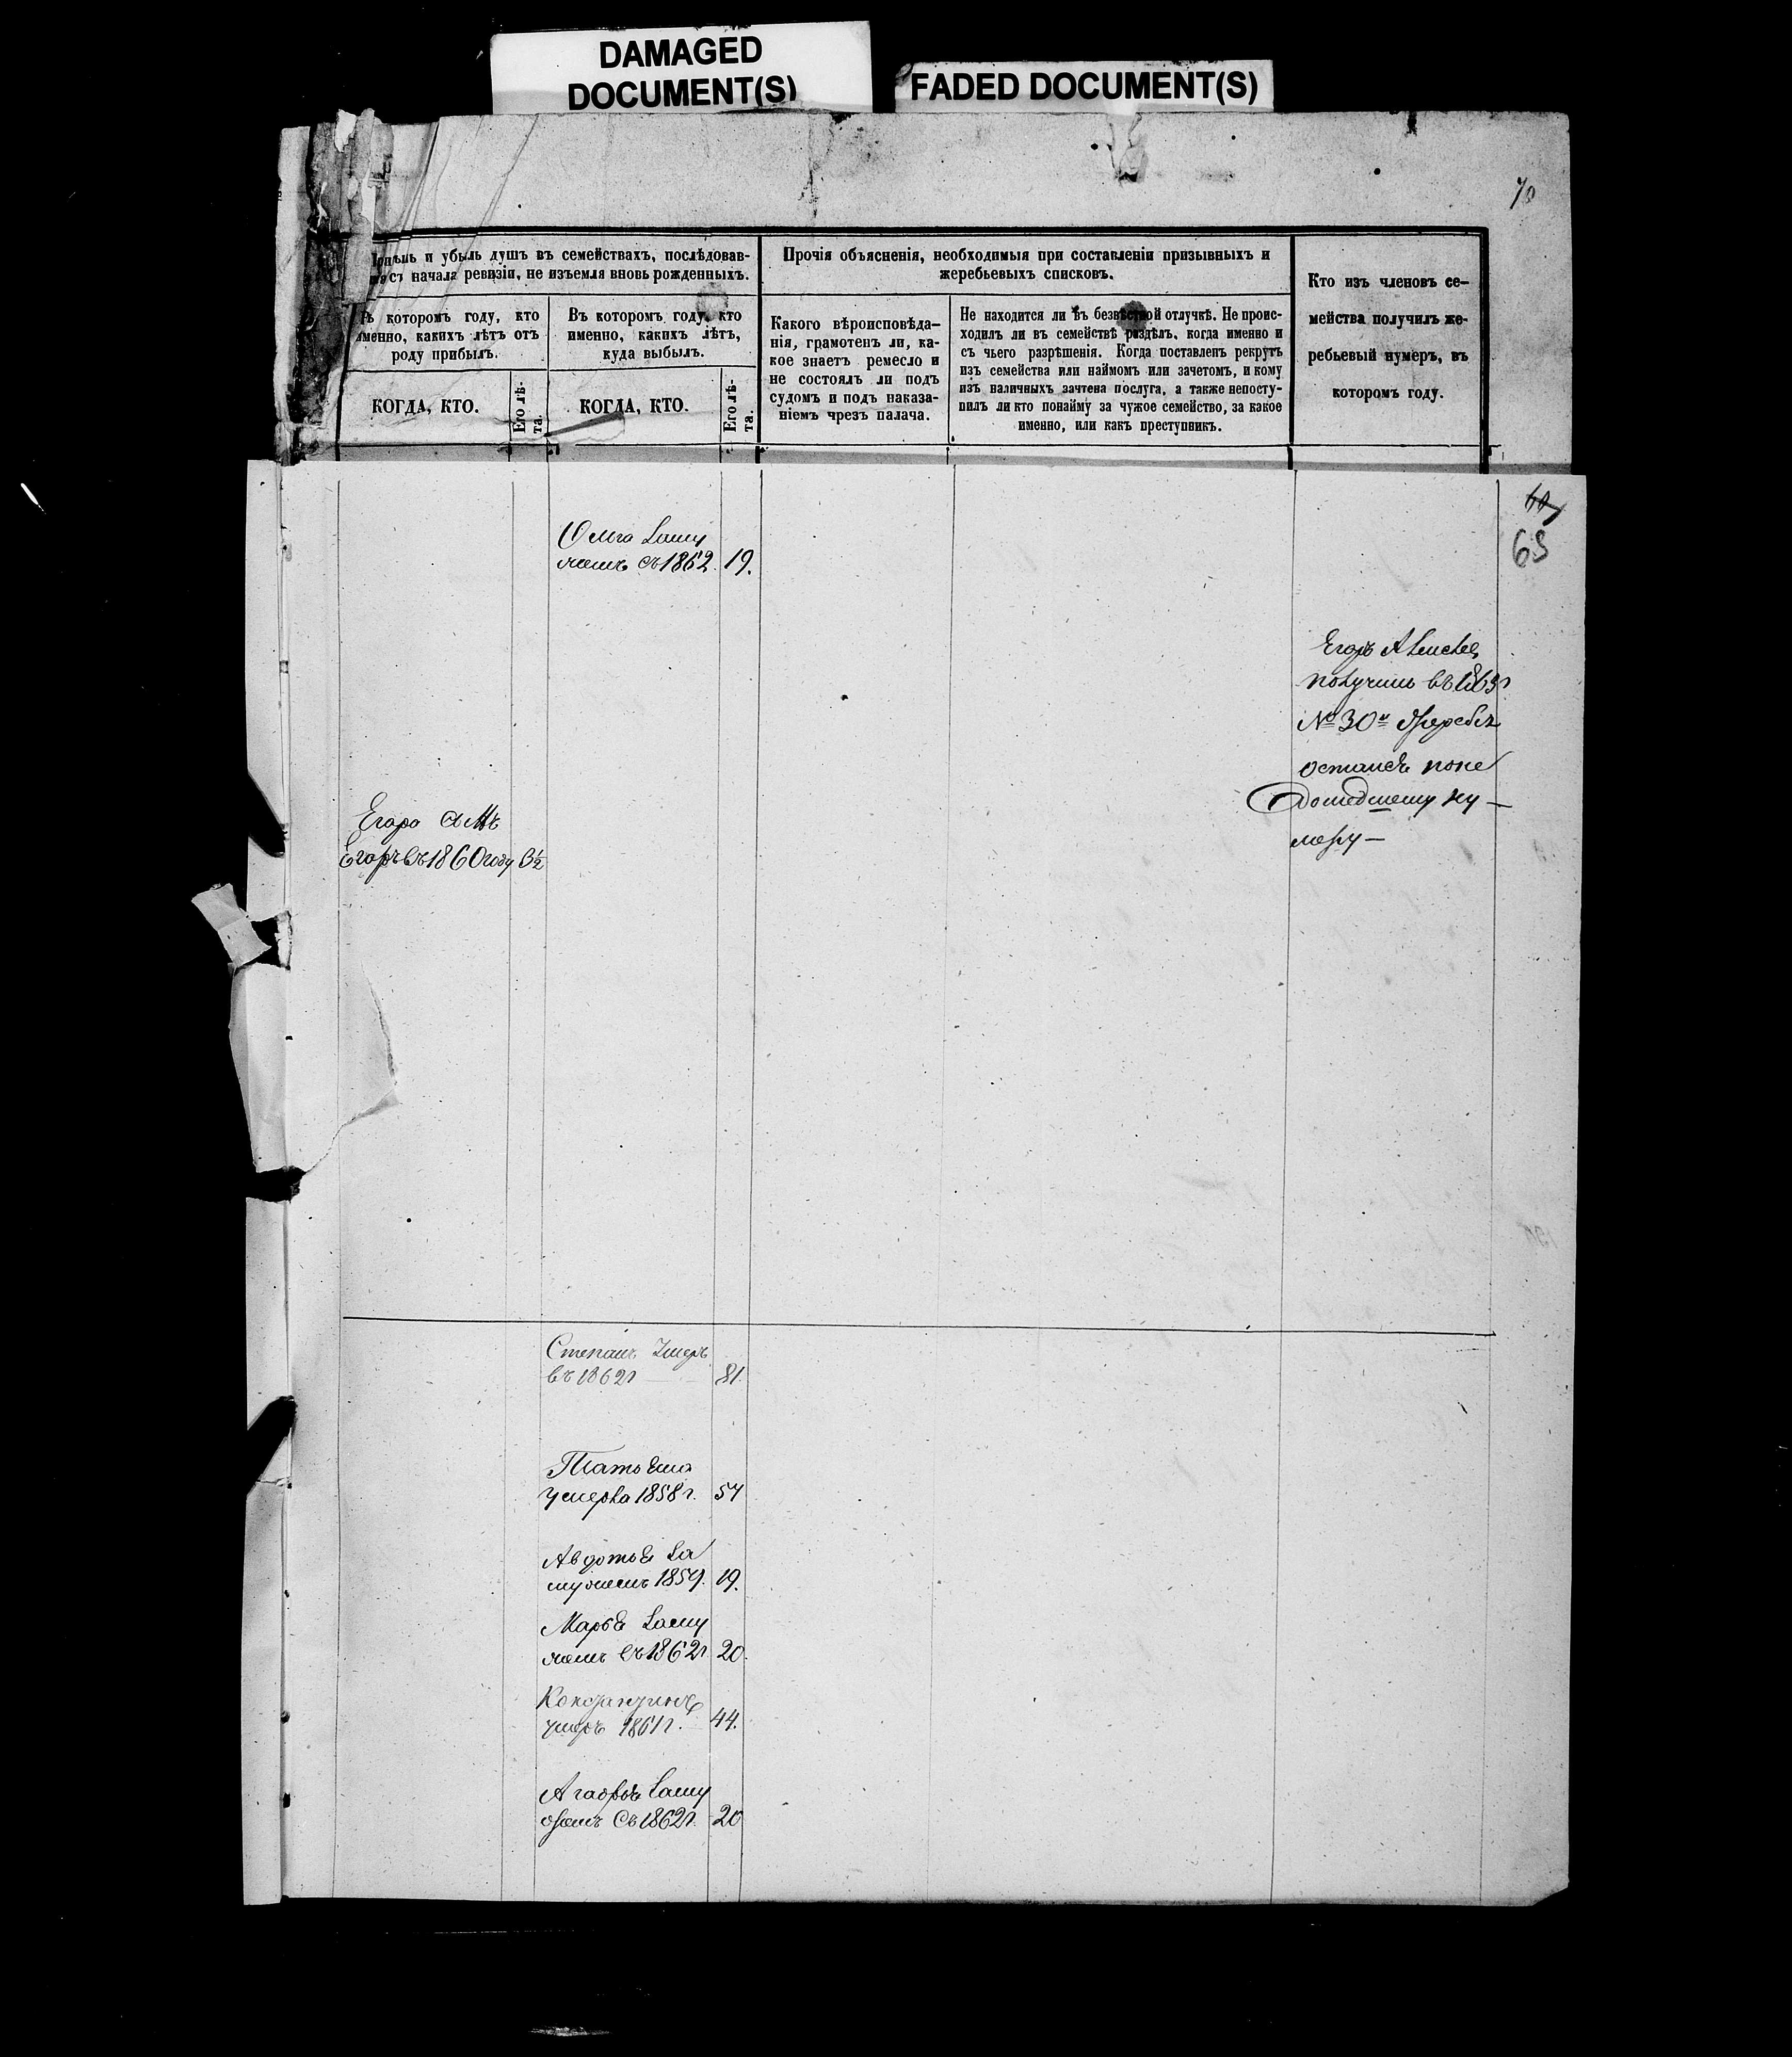 DAMAGED
DOCUMENT(S)
FADED DOCUMENT(S)
и убыль душъ въ семействахъ, послѣдовав-
съ начала ревизіи, не изъемля вновь рожденныхъ.
Прочія объясненія, необходимыя при составленіи призывныхъ и
жеребьевыхъ списковъ.
Кто изъ членовъ се-
мейства получилъ же-
ребьевый нумеръ, въ
которомъ году.
которомъ году, кто
именно, какихъ лѣтъ отъ
роду прибылъ.
Въ которомъ году, кто
именно, какихъ лѣтъ,
куда выбылъ.
Какого вѣроисповѣда-
нія, грамотенъ ли, ка-
кое знаетъ ремесло и
не состоялъ ли подъ
судомъ и подъ наказа-
ніемъ чрезъ палача.
Не находится ли въ безвѣстной отлучкѣ. Не проис-
ходилъ ли въ семействѣ раздѣлъ, когда именно и
съ чьего разрѣшенія. Когда поставленъ рекрутъ
изъ семейства или наймомъ или зачетомъ, и кому
изъ наличныхъ зачтена послуга, а также непосту-
пилъ ли кто понайму за чужое семейство, за какое
именно, или какъ преступникъ.
КОГДА, КТО.
Его лѣ-
та.
КОГДА, КТО.
Его лѣ-
та.
Ольга Заму
жемъ съ 1862. 19.
Егоръ
получилъ въ 1863г
№ 30й Жеребья
остался поне
дошедшему ну-
меру-
Егора
Егоръ въ 1860 году
Степанъ Умеръ
въ 1862г 81.
Татьяна
умерла 1858 г. 54
Авдотья За
мужемъ 1859. 19.
Марья Заму
жемъ съ 1862г 20.
умеръ 1861г. 44.
Агафья Заму
жемъ Съ 1862г. 20